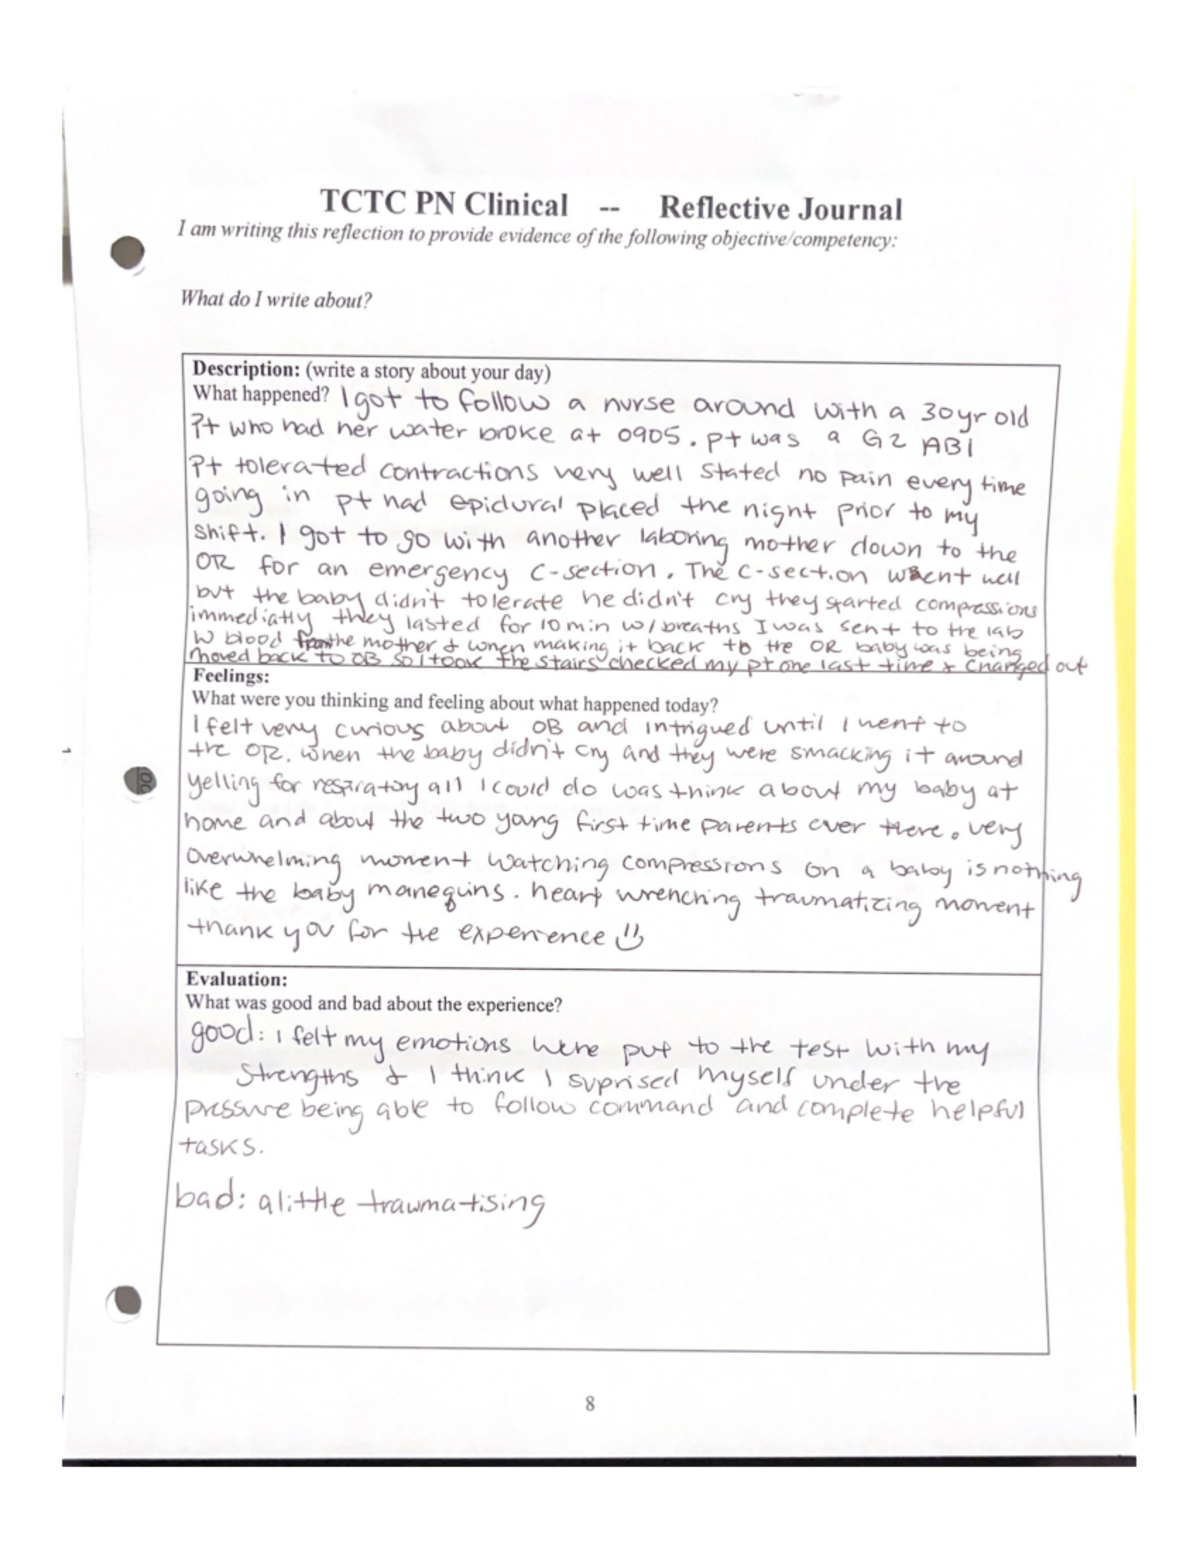 TCTC PN Clinical -- Reflective Journal
I am writing this reflection to provide evidence of the following objective/competency:
What do I write about?
Description: (write a story about your day)
What happened? I got to follow a nurse around with a 30yr old
Pt who had her water broke at 0905. pt was a G2 AB1
Pt tolerated contractions very well stated no pain every time
going in pt had epidural placed the night prior to my
shift. I got to go with another laboring mother down to the
OR for an emergency C-section. The C-section went well
but the baby didn't tolerate he didn't cry they started compressions
immediatly they lasted for 10 min w/ breaths I was sent to the lab
W blood from the mother & when making it back to the OR baby was being
moved back to OB so i took the stairs checked my pt one last time & changed out
Feelings:
What were you thinking and feeling about what happened today?
I felt very curious about OB and intrigued until I went to
the OR. when the baby didn't cry and they were smacking it around
yelling for respiratory all I could do was think about my baby at
home and about the two young first time parents over there. very
overwhelming moment watching compressions on a baby is nothing
like the baby manequins. heart wrenching traumatizing moment
thank you for the experience
Evaluation:
What was good and bad about the experience?
good: i felt my emotions were put to the test with my
strengths & I think I suprised myself under the
pressure being able to follow command and complete helpful
tasks.
bad: alittle traumatising
8